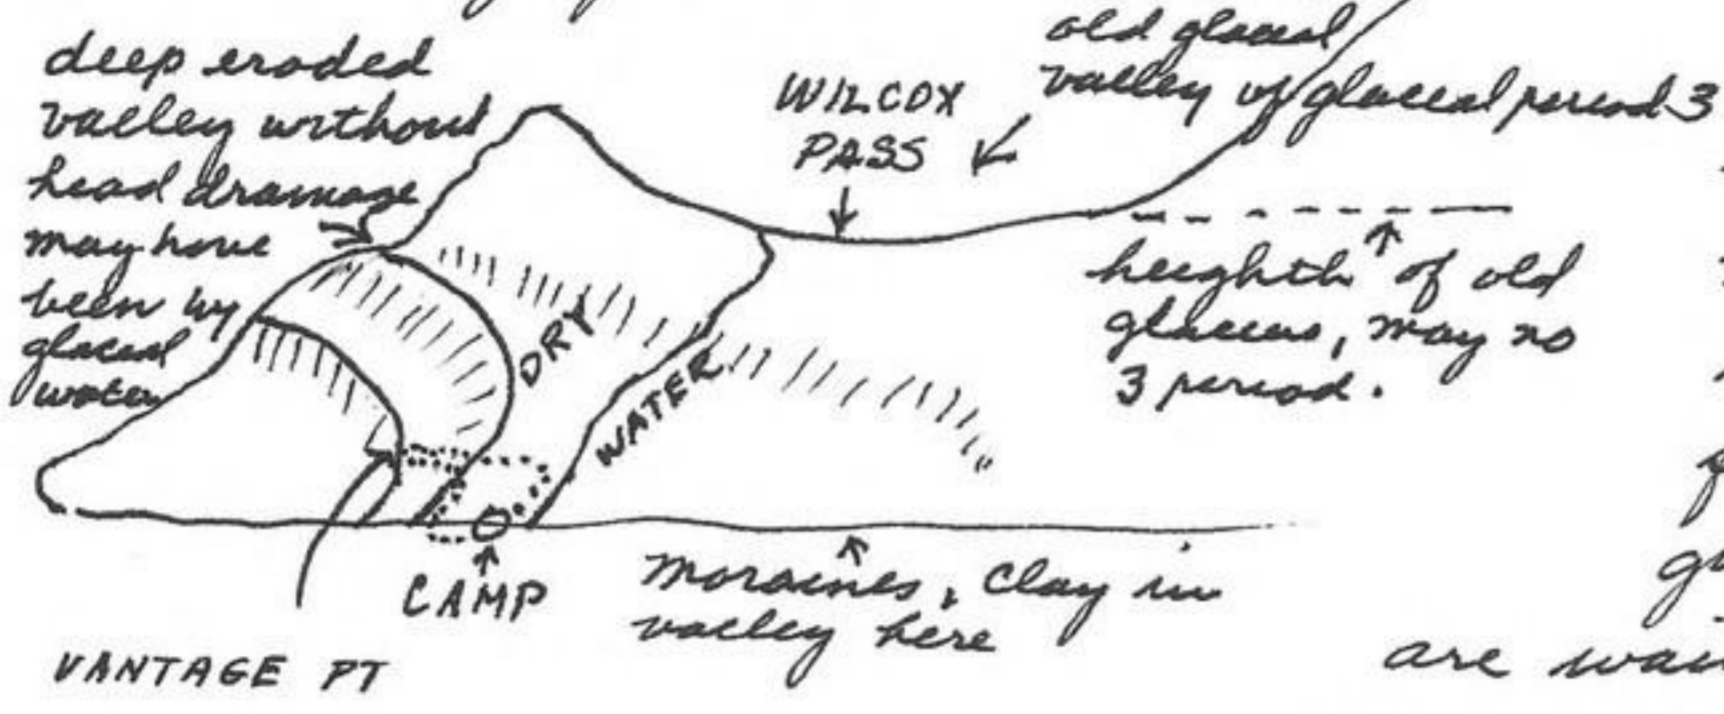 deep eroded
valley without
head drainage
may have
been by
glacial
water
WILCOX
PASS
old glacial
valley of glacial period 3
heighth of old
glaciers, may no
3 period.
DRY
WATER
CAMP
moraines, clay in
valley here
VANTAGE PT
are